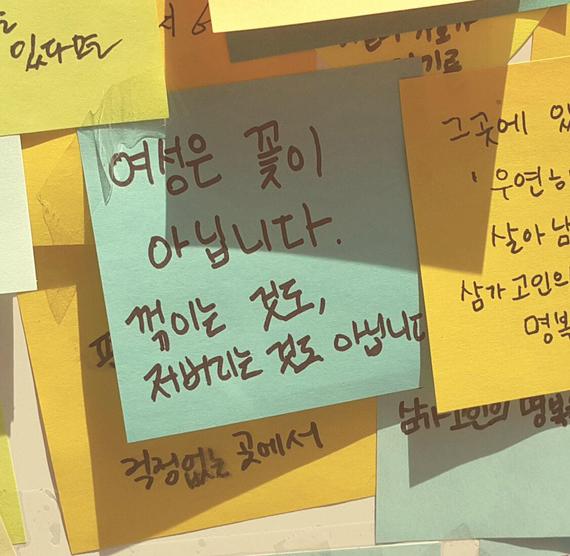 있다면
여성은 꽃이
아닙니다.
꺾이는 것도,
져버리는 것도 아닙니다
그곳에
우연히
살아남
삼가 고인의
명복
걱정없는 곳에서
삼가 고인의 명복